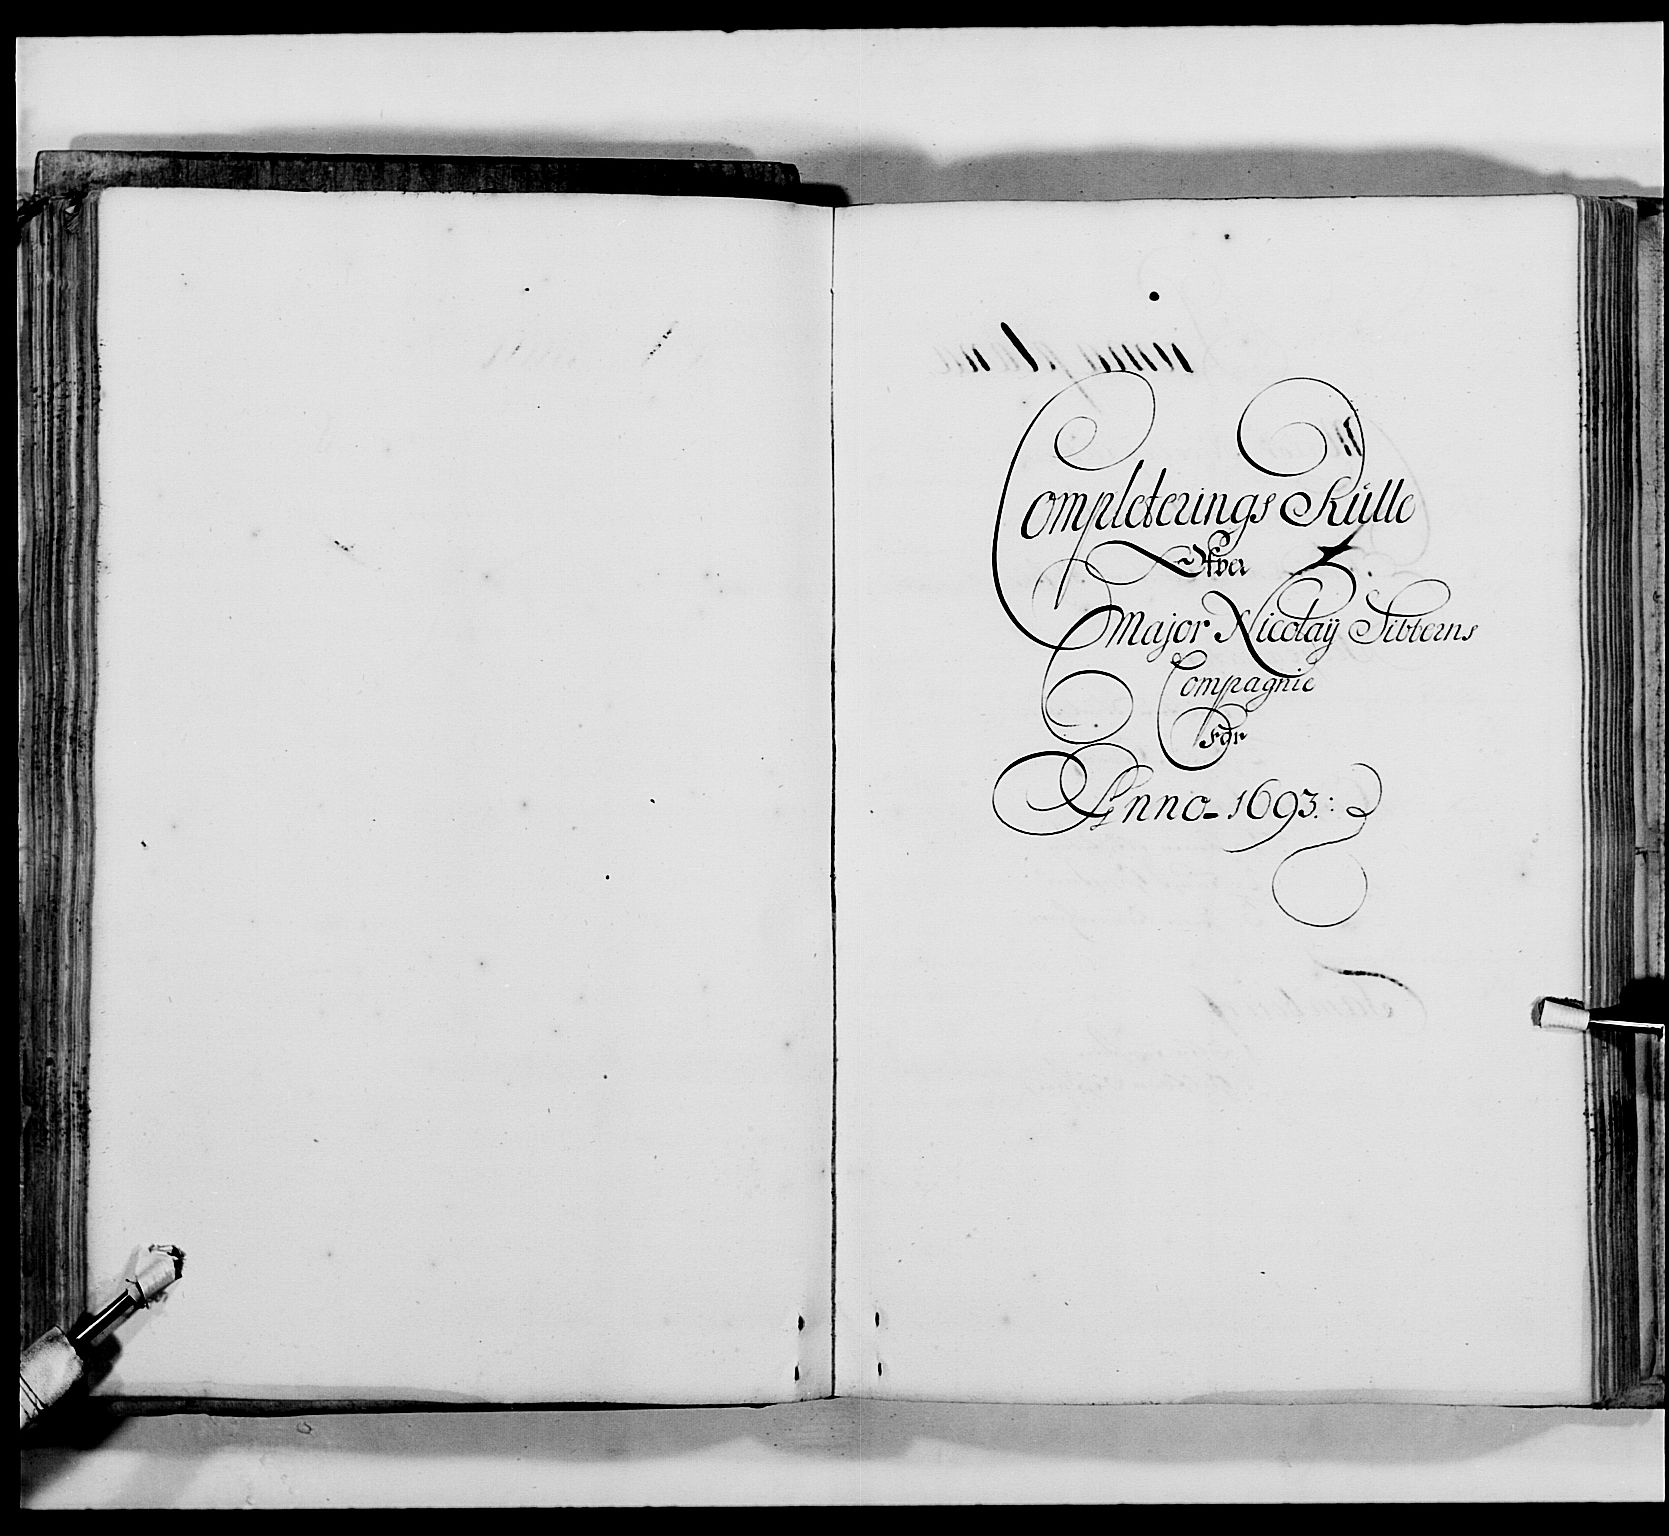 Completerings Rulle
Öfver
Major Nicolaÿ Sibberns
Compagnie
För
Anno 1693.